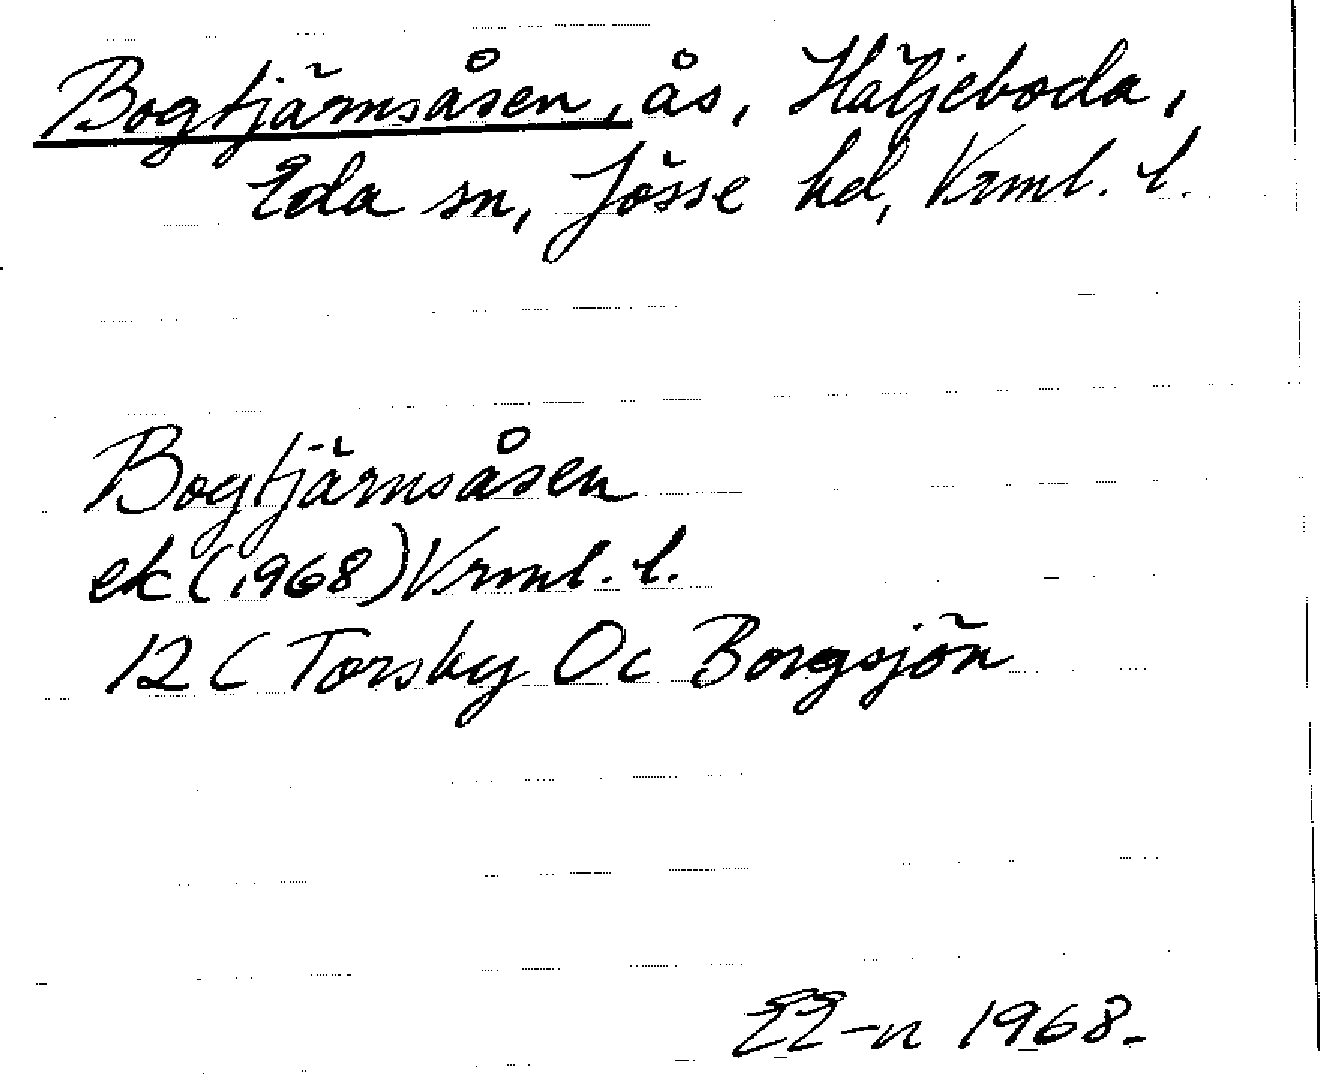 Bogtjärnsåsen, ås, Häljeboda,
Eda sn, Jösse hd, Vrml. l.
Bogtjärnsåsen
ek (1968) Vrml. l.
12 C Torsby 0c Borgsjön
EE-n 1968.